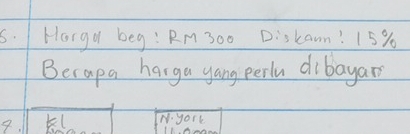 5. Harga beg: RM300 Diskaun: 15%
Berapa harga yang perlu dibayar
KL N.York